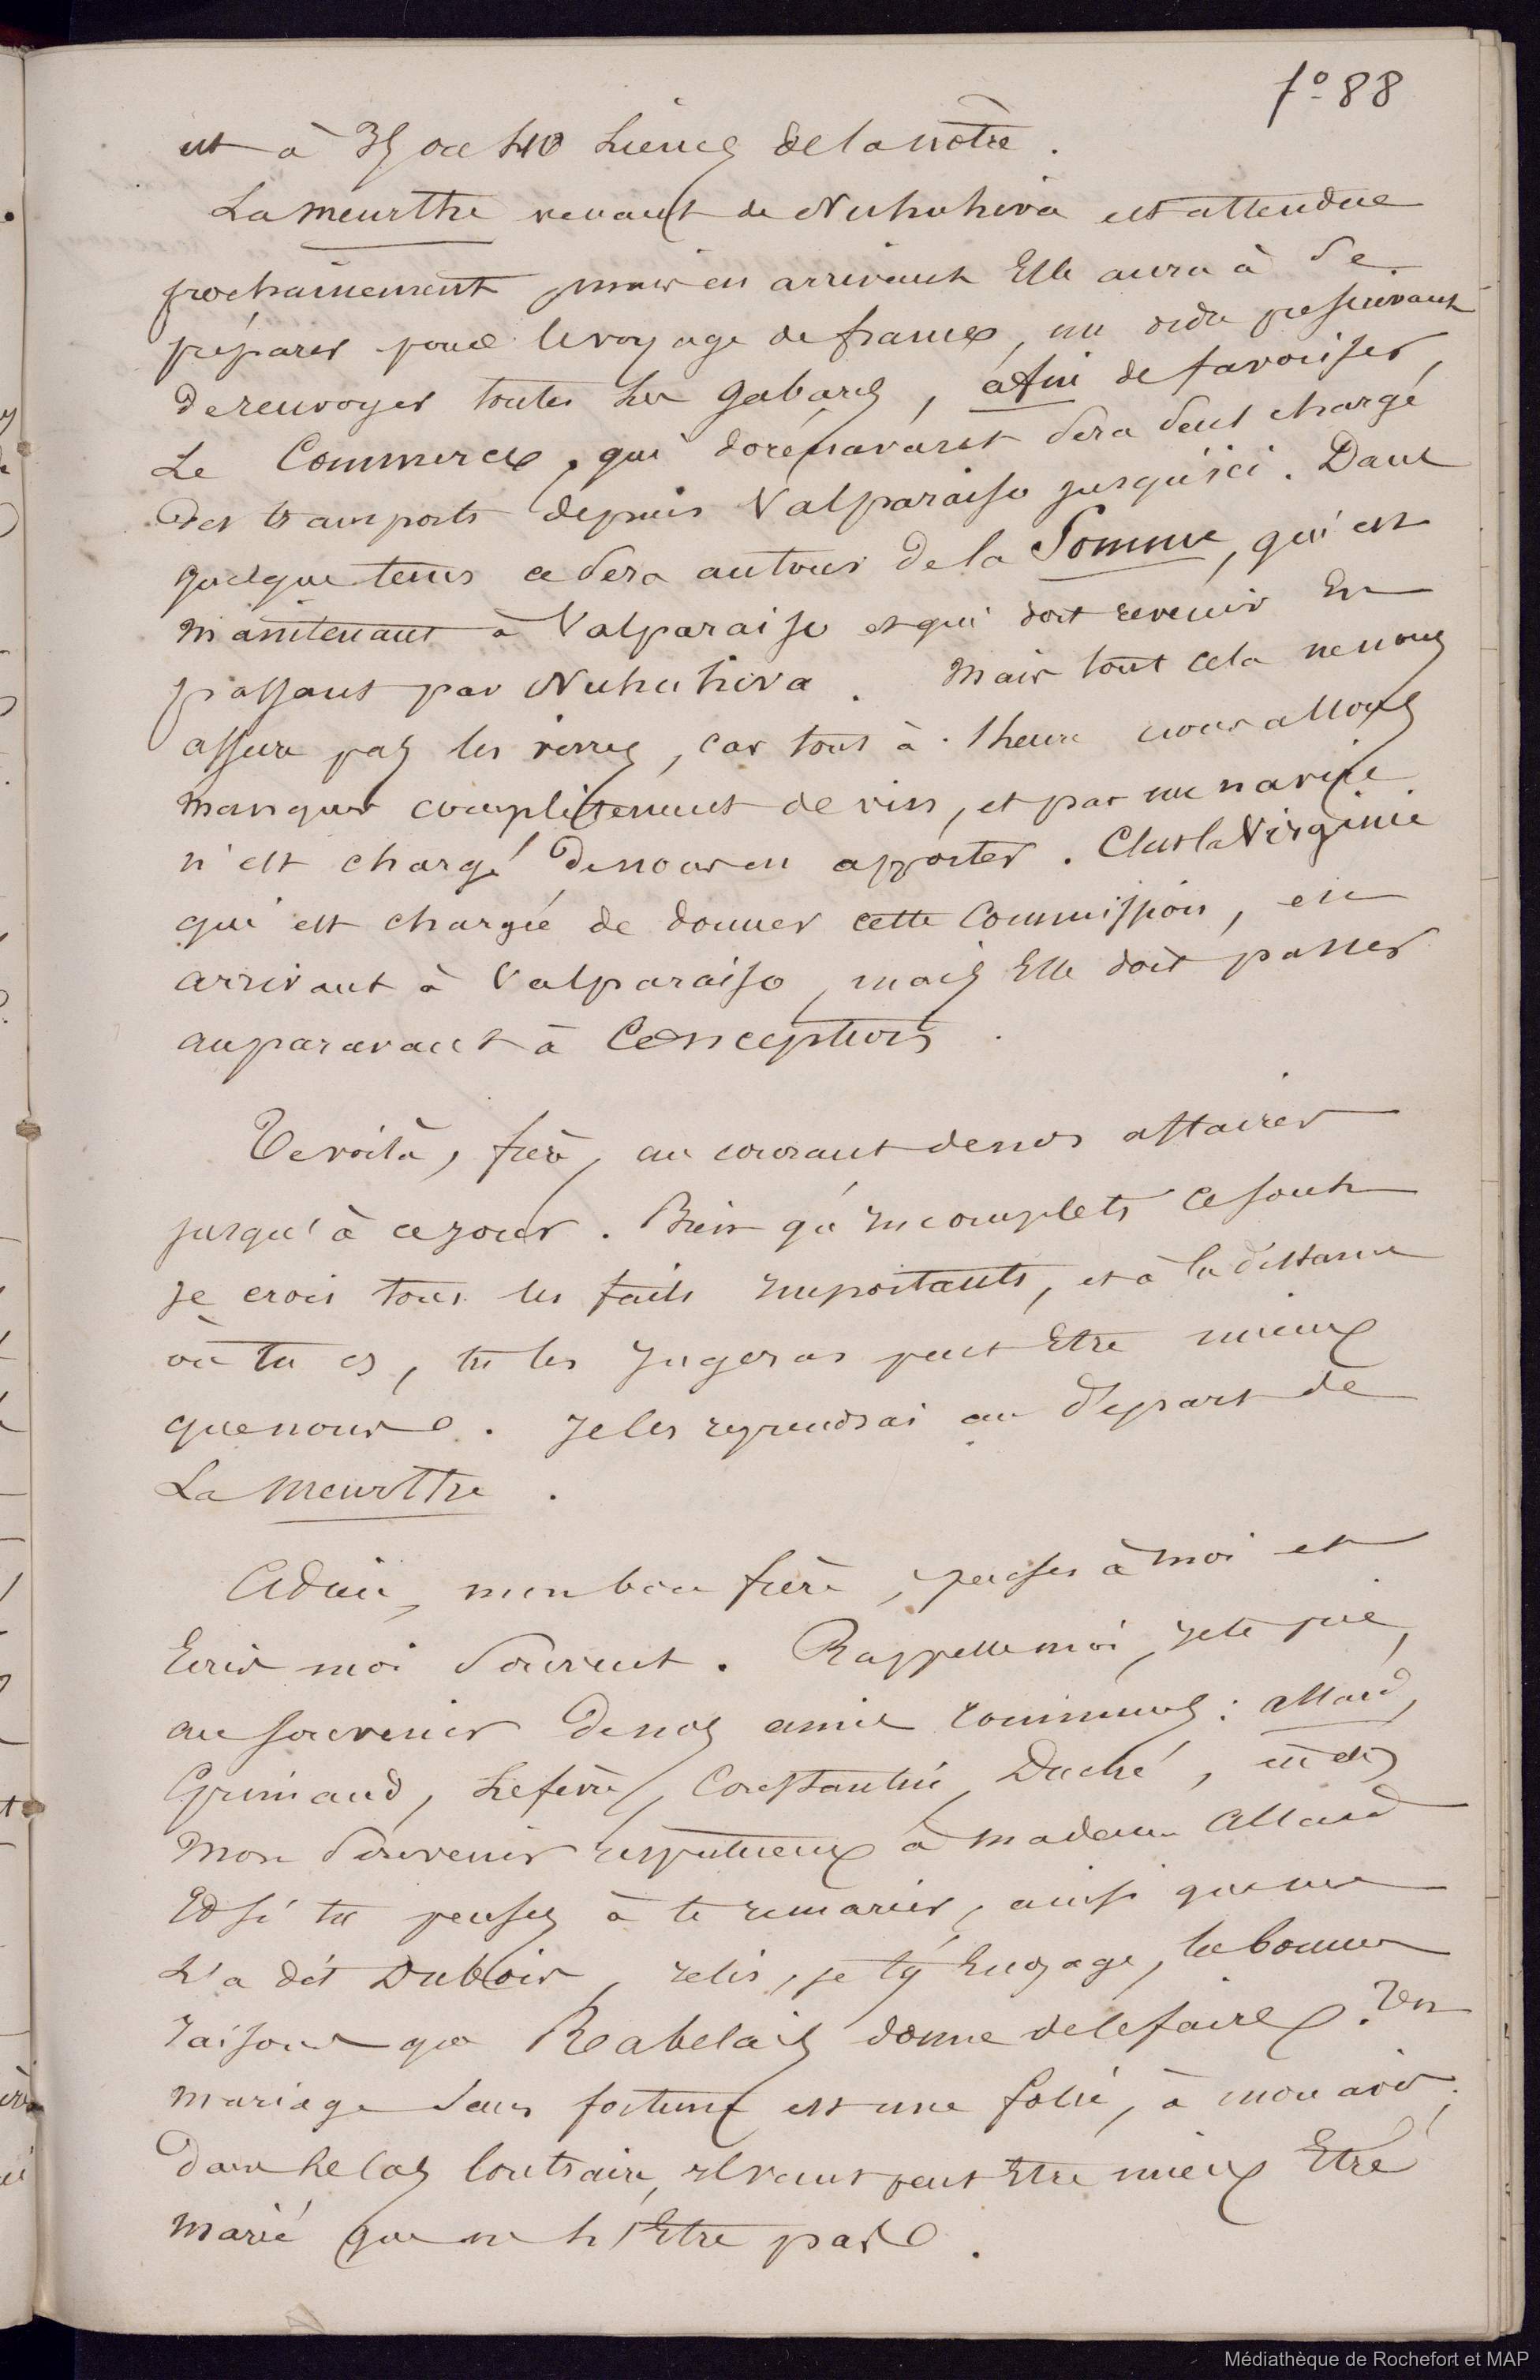 fº 88
est à 35 ou 40 lieues de la nôtre.
La Meurthe venant de Nuhuhiva est attendue
prochainement mais en arrivant Elle aura à se
préparer pour le voyage de france, un ordre prescrivant
de renvoyer toutes les gabares, afin de favoriser,
Le Commerce, qui dorénavant sera seul chargé
des transports depuis Valparaiso jusqu'ici. Dans
quelque tems ce sera autour de la Somme, qui est
maintenant à Valparaiso et qui doit revenir En
passant par Nuhuhiva. Mais tout cela ne nous
assure pas les vivres, car tout à l'heure nous allons
manquer complètement de vin, et pas un navire
n'est chargé de nous en apporter. C'est la Virginie
qui est chargée de donner cette commission, en
arrivant à Valparaiso, mais Elle doit passer
auparavant à Conception.
Te voilà, frère, au courant de nos affaires
jusqu'à ce jour. Bien qu'incomplets ce sont
je crois tous les faits importants, et à la distance
où tu es, tu les jugeras peut Etre mieux
que nous. Je les reprendrai au départ de
La Meurthe.
Adieu, mon bon frère, penses à moi et
Ecris moi souvent. Rappelle moi, je te prie,
au souvenir de nos amis communs: Allard,
Grimaud, Lefèvre, Constantin, Duché,
Mon souvenir respectueux à madame Allard
Et si tu penses à te remarier, ainsi que me
l'a dit Dubois, relis, je t'y Engage, les bonnes
raisons que Rabelais donne de le faire. Un
mariage sans fortune est une folie, à mon avis;
dans le cas contraire, il vaut peut Etre mieux Etre
marié que ne l'Etre pas.
Médiathèque de Rochefort et MAP